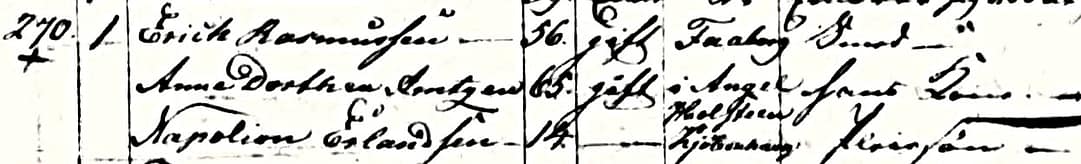 270. 1 Erich Rasmussen — 56. gift Faaborg Smed —
Anne Dorthea Jentzen 65. gift i Angel hans Kone —
Holsteen
Napolion Erlandsen 14. — Kjöbenhavn Pleiesøn —